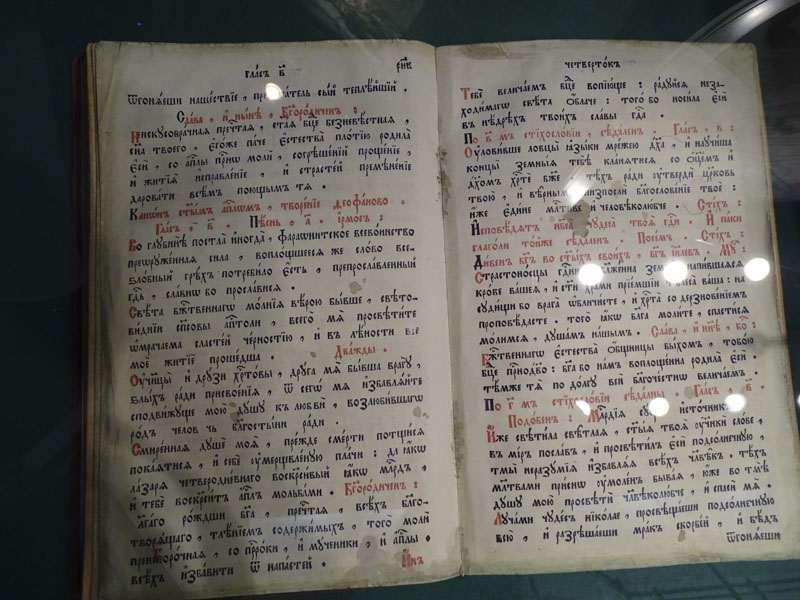 гла́съ в҃
рн҃в
ѿгонѧ́еши наше́ствїе , сы́й теплѣ́йшїй .
Сла́ва , и҆ ны́нѣ , Бг҃оро́диченъ :
Нискꙋсобра́чнаѧ пречⷭ҇таѧ , ст҃а́ѧ бц҃е безневѣ́стнаѧ ,
сн҃а твоего̀ , є҆го́же па́че є҆стества̀ пло́тїю родила̀
є҆сѝ , со а҆пⷭ҇лы при́снѡ молѝ , согрѣше́нїй проще́нїе ,
и҆ житїѧ̀ и҆справле́нїе , и҆ страсте́й премѣне́нїе
дарова́ти всѣ́мъ пою́щымъ тѧ̀ .
Канѡ́нъ ст҃ы́мъ а҆пⷭ҇лѡмъ , творе́нїе ѳеофа́ново .
Гла́съ , в҃ . Пѣ́снь , а҃ . і҆рмо́съ :
Во глꙋбинѣ̀ постла̀ и҆ногда̀ , фараѡни́тское всево́инство
преѡрꙋже́ннаѧ си́ла , воплоще́шеесѧ же сло́во все-
ѕло́бный грѣ́хъ потреби́ло є҆́сть , препросла́вленный
гдⷭ҇ь , сла́внѡ бо просла́висѧ .
Свѣ́та бж҃е́ственнагѡ мо́лнїѧ вѣ́рою бы́вше , свѣто-
ви́днїи сп҃совы а҆пⷭ҇толи , всего́ мѧ просвѣти́те
ѡ҆мрача́ема сласте́й че́рностїю , и҆ въ лѣ́ности всѐ
моѐ житїѐ проше́дша . Два́жды .
Оу҆ч҃ицы̀ и҆ дрꙋ́зи хрⷭ҇то́вы , дрꙋ́га мѧ̀ бы́вша врагꙋ̀ ,
ѕлы́хъ ра́ди присвое́нїѧ , ѿ сегѡ̀ мѧ̀ и҆збавлѧ́йте
сподви́жꙋще мою̀ дꙋ́шꙋ къ любвѝ , возлюби́вшагѡ
ро́дъ челов чь бл҃госты́ни ра́ди .
Смире́ннаѧ дꙋшѐ моѧ̀ , пре́жде сме́рти потщи́сѧ
пока́ѧтисѧ , и҆ себѐ ᲂу҆мерщвле́нꙋю пла́чи : да ꙗ҆́кѡ
ла́зарѧ четверодне́внаго воскреси́вый ꙗ҆́кѡ млⷭ҇рдъ ,
и҆ тебѐ воскреси́тъ а҆пⷭ҇лъ мольба́ми . Бг҃оро́диченъ :
Бл҃га́го ро́ждши бг҃а , пречⷭ҇таѧ , всѣ́хъ бл҃го-
творѧ́щаго , тлѣ́нїемъ содержи́мыхъ , того̀ молѝ
пренепоро́чнаѧ , со прⷪ҇ро́ки , и҆ мч҃ники , и҆ а҆пⷭ҇лы .
всѣ́хъ и҆зба́вити ѿ напа́стей .
И҆́нъ
четверто́къ
Тебѐ велича́емъ бц҃е вопїю́ще : ра́дꙋйсѧ неза-
ходи́магѡ свѣ́та ѻ҆́блаче : того́ бо носи́ла є҆сѝ
въ нѣ́дрѣхъ твои́хъ сла́вы гдⷭ҇а .
По в҃ мъ стїхосло́вїи , сѣда́ленъ . Гла́съ , в҃ :
Оу҆лови́вше ловцы̀ ꙗ҆зы́ки мре́жею дх҃а , и҆ наꙋчи́ша
концы̀ земны́ѧ тебѣ̀ кла́нѧтисѧ со ѻ҆ц҃е́мъ и҆
дх҃омъ хрⷭ҇тѐ бж҃е , тѣ́хъ ра́ди ᲂу҆твердѝ цр҃ковь
твою̀ , и҆ вѣ̑рнымъ низпослѝ благослове́нїе твоѐ :
и҆́же є҆ди́не млⷭ҇тиве и҆ человѣколю́бче . Сті́хъ :
И҆сповѣ́дѧтъ нб҃са̀ чꙋдеса̀ твоѧ̀ гдⷭ҇и . И҆ па́ки
глаго́ли то́йже сѣда́ленъ . Посе́мъ . Сті́хъ :
Ди́венъ бг҃ъ во ст҃ы́хъ свои́хъ , бг҃ъ і҆и҃левъ . Мч҃ :
Страстоно́сцы гдⷭ҇ни , бл҃же́нна землѧ̀ напи́вшаѧсѧ
кро́ве ва́шеѧ , и҆ ст҃и хра́ми прїе́мшїи тѣлеса̀ ва̑ша : на
сꙋди́щи бо врага̀ ѡ҆бличи́сте , и҆ хрⷭ҇та̀ со дерзнове́нїемъ
проповѣ́дасте . того̀ ꙗ҆́кѡ бл҃га моли́те , спасти́сѧ
мо́лимсѧ , дꙋша́мъ на́шымъ . Сла́ва , и҆ нн҃ѣ , бо҃ :
Бж҃е́ственнагѡ є҆стества̀ ѻ҆́бщницы бы́хомъ , тобо́ю
бц҃е приснодв҃о : бг҃а бо на́мъ воплоще́нна родила̀ є҆сѝ .
тѣ́мже тѧ̀ по до́лгꙋ всѝ бл҃гоче́стнѡ велича́емъ .
По г҃ мъ стїхосло́вїи сѣда́льны . Гла́съ , в҃ .
Подо́бенъ : Млⷭ҇рдїѧ сꙋ́щи и҆сто́чникъ .
И҆́же свѣти́ла свѣ́тлаѧ , ст҃ы́ѧ твоѧ̀ ᲂу҆ч҃никѝ сло́ве ,
въ мі́ръ посла́въ , и҆ просвѣти́лъ є҆сѝ подсо́лнечнꙋю ,
тмы̀ неразꙋ́мїѧ и҆збавлѧ́ѧ всѣ́хъ чл҃вѣ́къ . тѣ́хъ
мл҃твами при́снѡ ᲂу҆моле́нъ быва́ѧ , ю҆́же во тмѣ̀
дꙋ́шꙋ мою̀ просвѣтѝ чл҃вѣколю́бче , и҆ спаси́ мѧ .
Лꙋча́ми чꙋде́съ нїко́лае , просвѣща́еши подсо́лнечнꙋю
всю̀ , и҆ разрѣша́еши мра́къ скорбе́й , и҆ бѣ́дъ
ѿгонѧ́еши